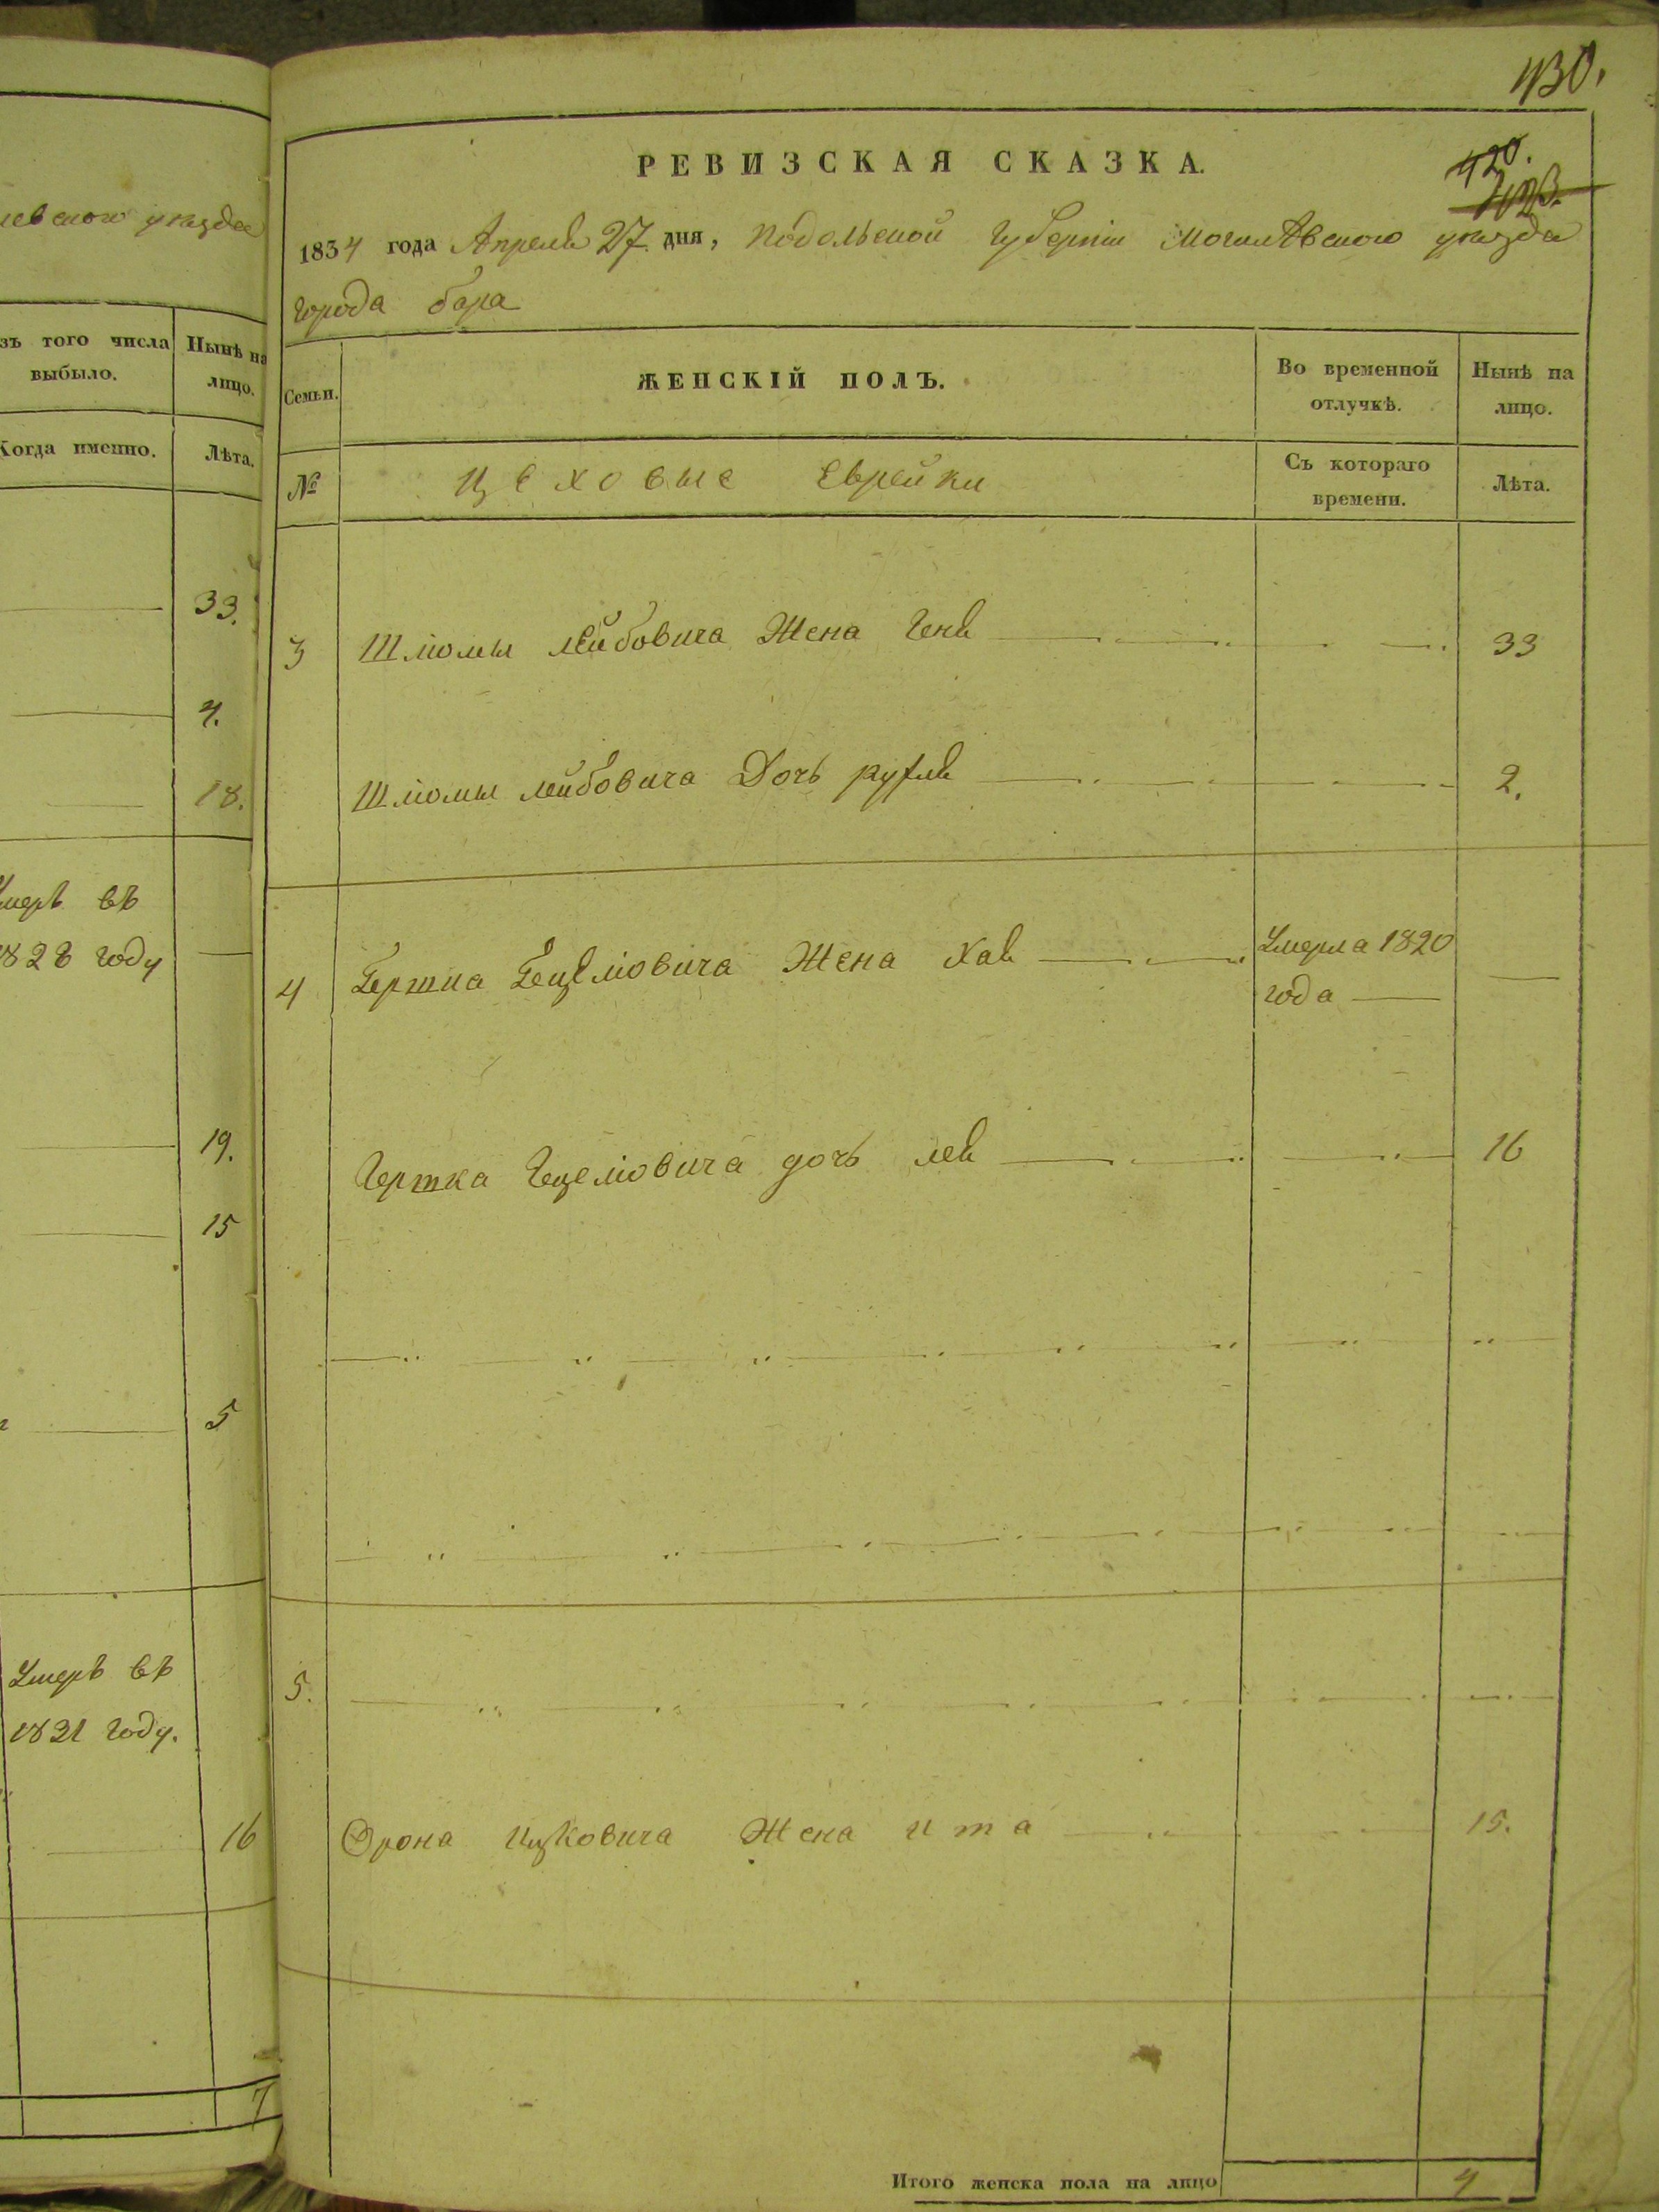 левского уѣзда
зъ того числа
выбыло.
Нынѣ на
лицо.
Когда именно.
Лѣта.
33.
4.
18.
Умеръ въ
1828 году
19.
15
5
Умеръ въ
1821 году.
16
7
430.
РЕВИЗСКАЯ СКАЗКА.
420.
1834 года Апреля 27 дня, Подольской губерніи Могилѣвского уѣзда
города бара
Семьи.
ЖЕНСКІЙ ПОЛЪ.
Во временной
отлучкѣ.
Нынѣ на
лицо.
№
Цеховые Еврейки
Съ котораго
времени.
Лѣта.
3 Шліомы лейбовича Жена Геня 33
Шліомы лейбовича Дочь рухля 2.
4 Гершка Гецеліовича Жена Хая Умерла 1820
года
Гершка Гецеліовича дочь лея 16
5.
Орона Ицковича Жена ита 15.
Итого женска пола на лицо 4